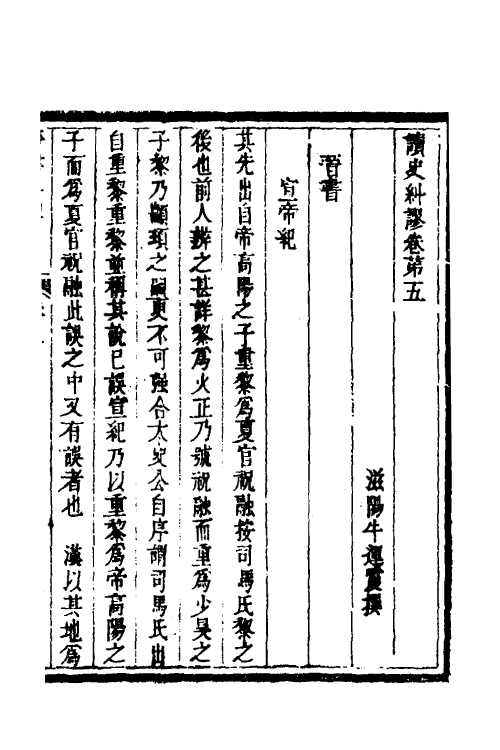 讀史糾謬卷第五
滋陽牛運震撰
晉書
宣帝紀
其先出自帝高陽之子重黎爲夏官祝融按司馬氏黎之
後也前人辨之甚詳黎爲火正乃號祝融而重爲少昊之
子黎乃顓頊之嗣更不可强合太史公自序謂司馬氏出
自重黎重黎並稱其說已誤宣紀乃以重黎爲帝高陽之
子而爲夏官祝融此誤之中又有誤者也 漢以其地爲